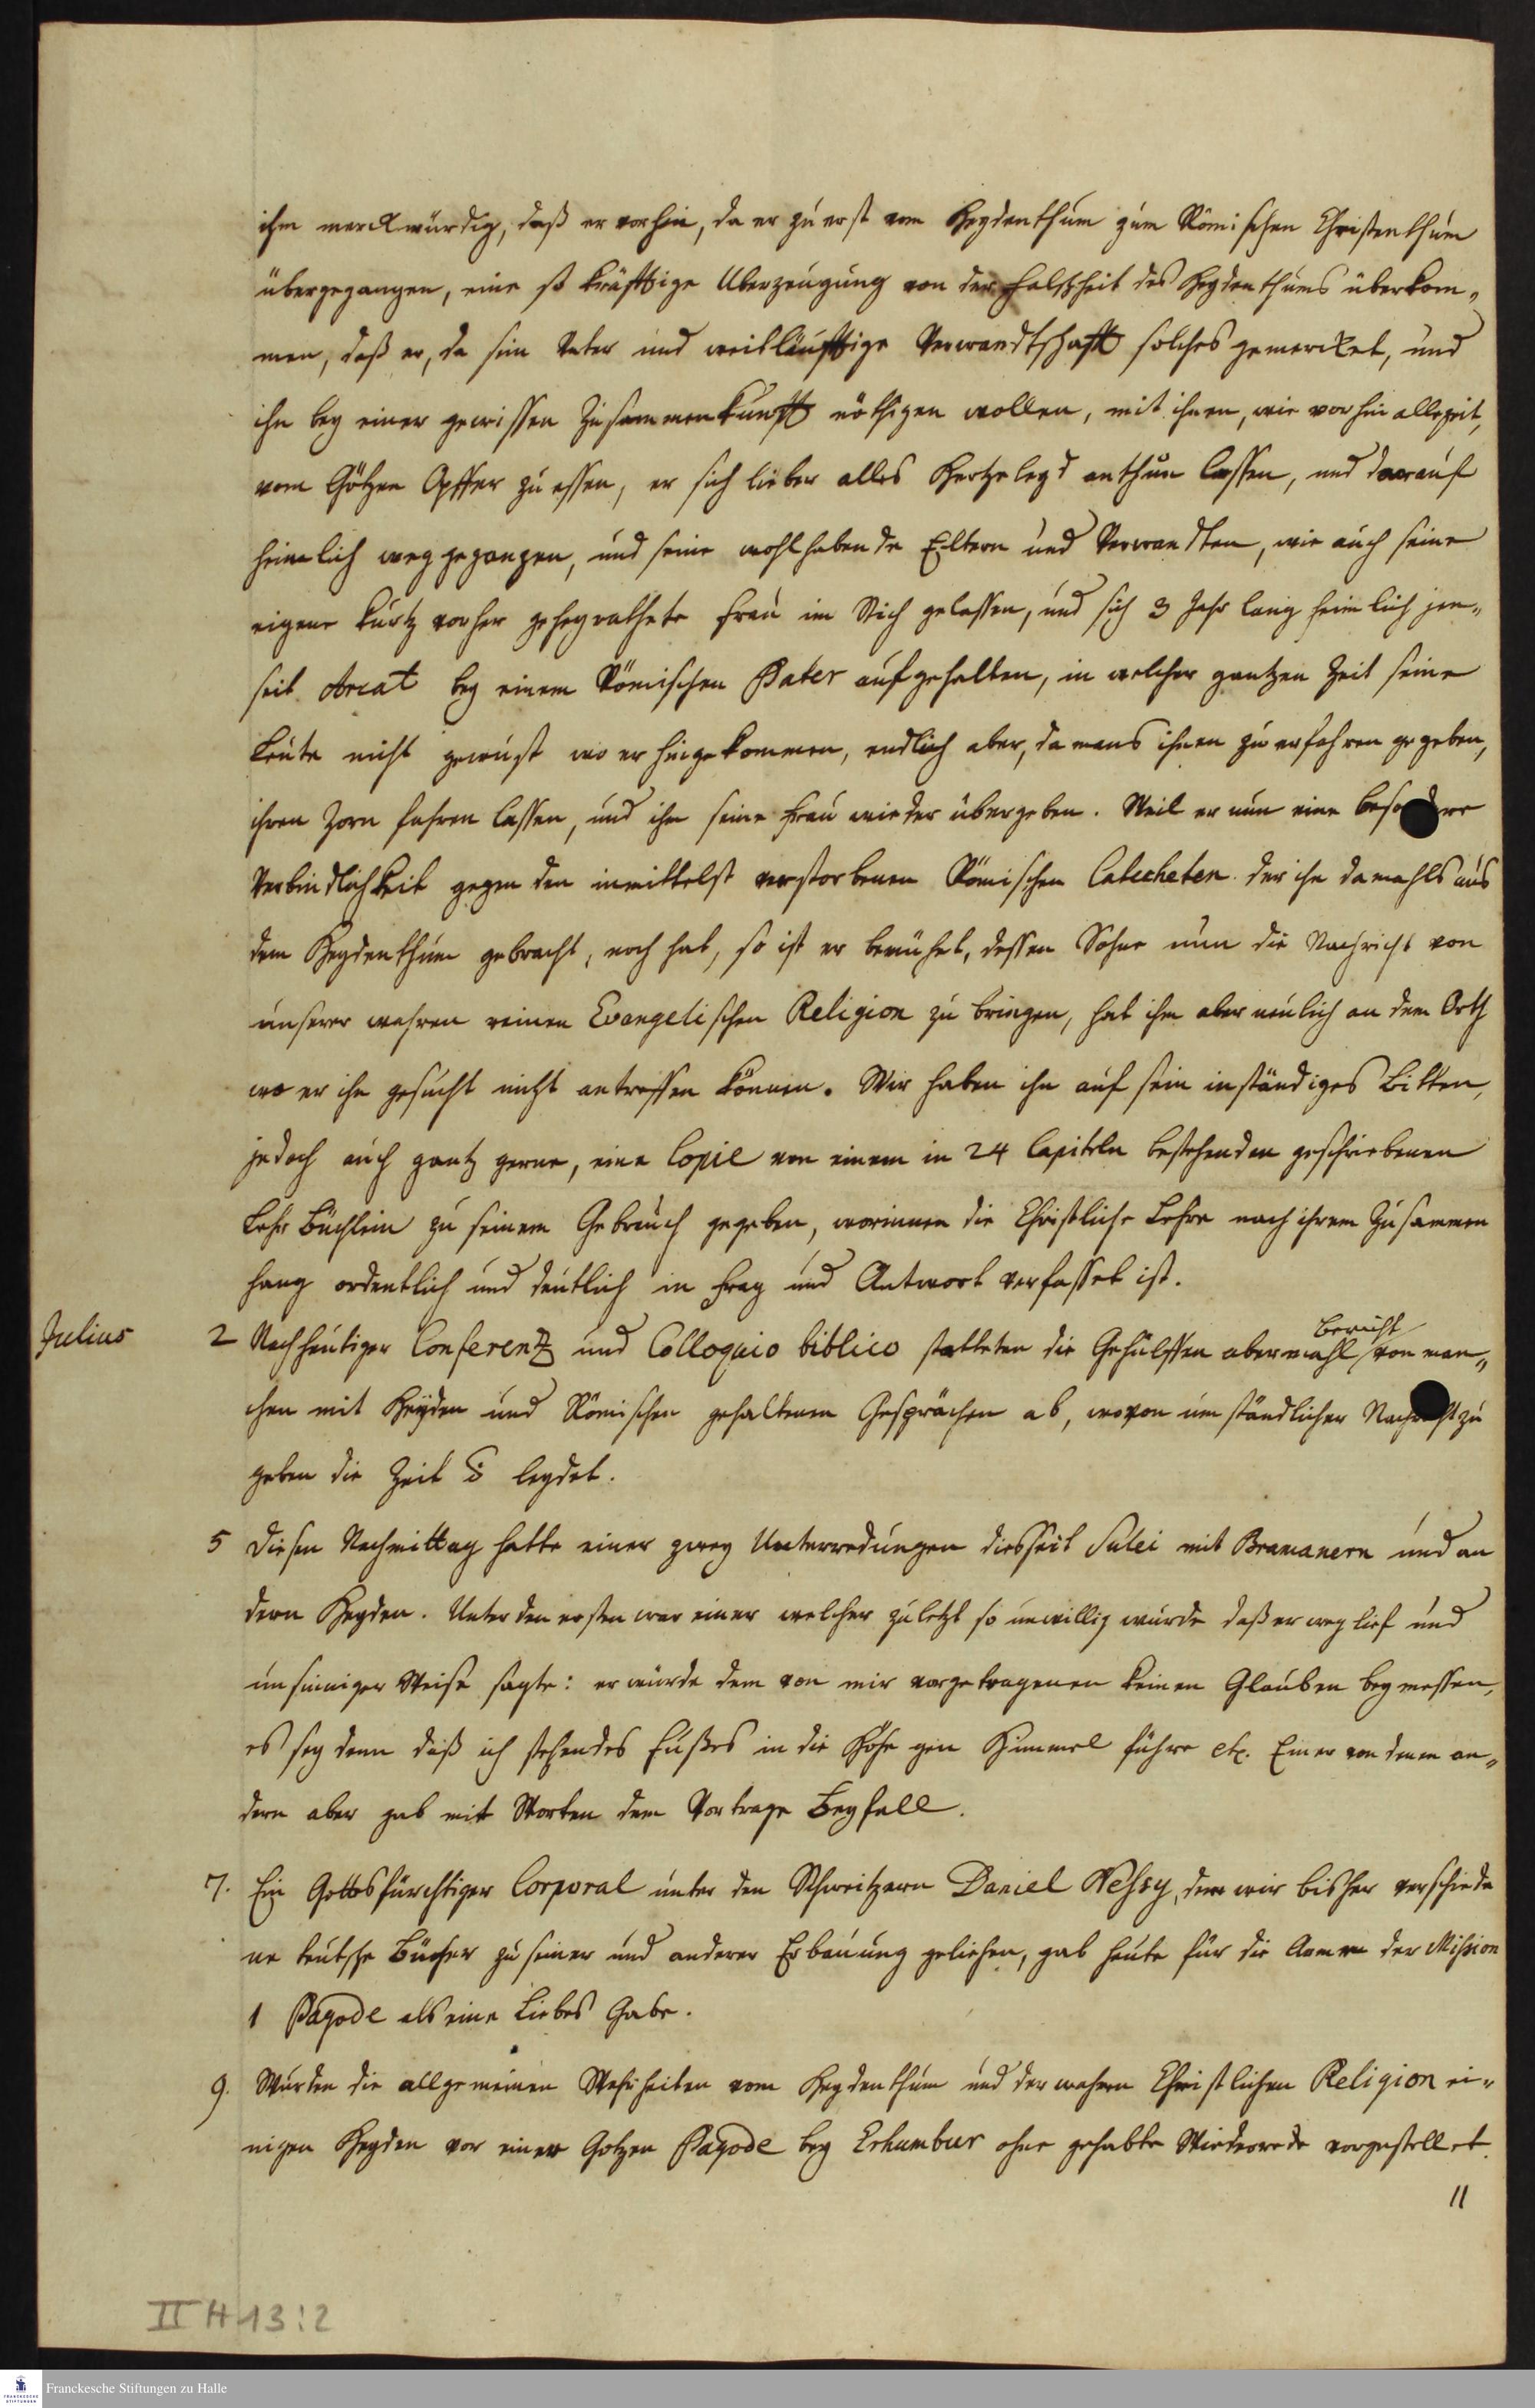 ihm merckwürdig, daß er vorhin, da er zu erst vom Heydenthum zum Römischen Christenthum
übergegangen, eine so kräfftige Uberzeugung von der Falschheit des Heydenthums überkom-
men, daß er, da sein Vater und weitläufftige Verwandtschafft solches gemercket, und
ihn bey einer gewissen Zusammenkunfft nöthigen wollen, mit ihnen, wie vorhin allezeit,
vom Götzen Opffer zu essen, er sich lieber alles Hertzeleyd anthun lassen, und darauf
heimlich weggegangen, und seine wohlhabende Eltern und Verwandten, wie auch seine
eigene kurtz vorher geheyrathete Frau im Stich gelassen, und sich 3 Jahr lang heimlich jen-
seit Arcat bey einem Römischen Pater aufgehalten, in welcher gantzen Zeit seine
Leute nicht gewust wo er hingekommen, endlich aber, da mans ihnen zu erfahren gegeben,
ihren Zorn fahren lassen, und ihm seine Frau wieder übergeben. Weil er nun eine besondere
Verbindlichkeit gegen den inmittelst verstorbenen Römischen Catecheten der ihn damahls aus
dem Heydenthum gebracht, noch hat, so ist er bemühet, dessen Sohne nun die Nachricht von
unserer wahren reinen Evangelischen Religion zu bringen, hat ihn aber neulich an dem Orth
wo er ihn gesucht nicht antreffen können. Wir haben ihm auf sein inständiges Bitten,
jedoch auch gantz gerne, eine Copie von einem in 24 Capiteln bestehenden geschriebenen
Lehr Büchlein zu seinem Gebrauch gegeben, worinnen die Christliche Lehre nach ihrem Zusammen
hang ordentlich und deutlich in Frag und Antwort verfasset ist.
Julius 2 Nach heutiger Conferentz und Colloquio biblico statteten die Gehülffen abermahl bericht von man-
chen mit Heyden und Römischen gehaltenen Gesprächen ab, wovon umständlicher Nachricht zu
geben die Zeit leydet.
5 Diesen Nachmittag hatte einer zwey Unterredungen diesseit Sulei mit Bramanern und an
dern Heyden. Unter den ersten war einer welcher zuletzt so unwillig wurde daß er weg lief und
unsinniger Weise sagte: er würde dem von mir vorgetragenen keinen Glauben beymessen,
es sey denn daß ich stehendes Fußes in die Höhe gen Himmel führe etc. Einer von denen an-
dern aber gab mit Worten dem Vortrage Beyfall.
7. Ein Gottsfürchtiger Corporal unter den Schweitzern Daniel Nehsy, dem wir bisher verschiede
ne teutsche Bücher zu seiner und anderer Erbauung geliehen, gab heute für die Armen der Mission
1 Pagode als eine Liebes Gabe.
9. Wurden die allgemeinen Wahrheiten vom Heydenthum und der wahren Christlichen Religion ei-
nigen Heyden vor einer Götzen Pagode bey Erhumbur ohne gehabte Wiederrede vorgestellet.
11
II H 13:2
FRANCKESCHE STIFTUNGEN
Franckesche Stiftungen zu Halle